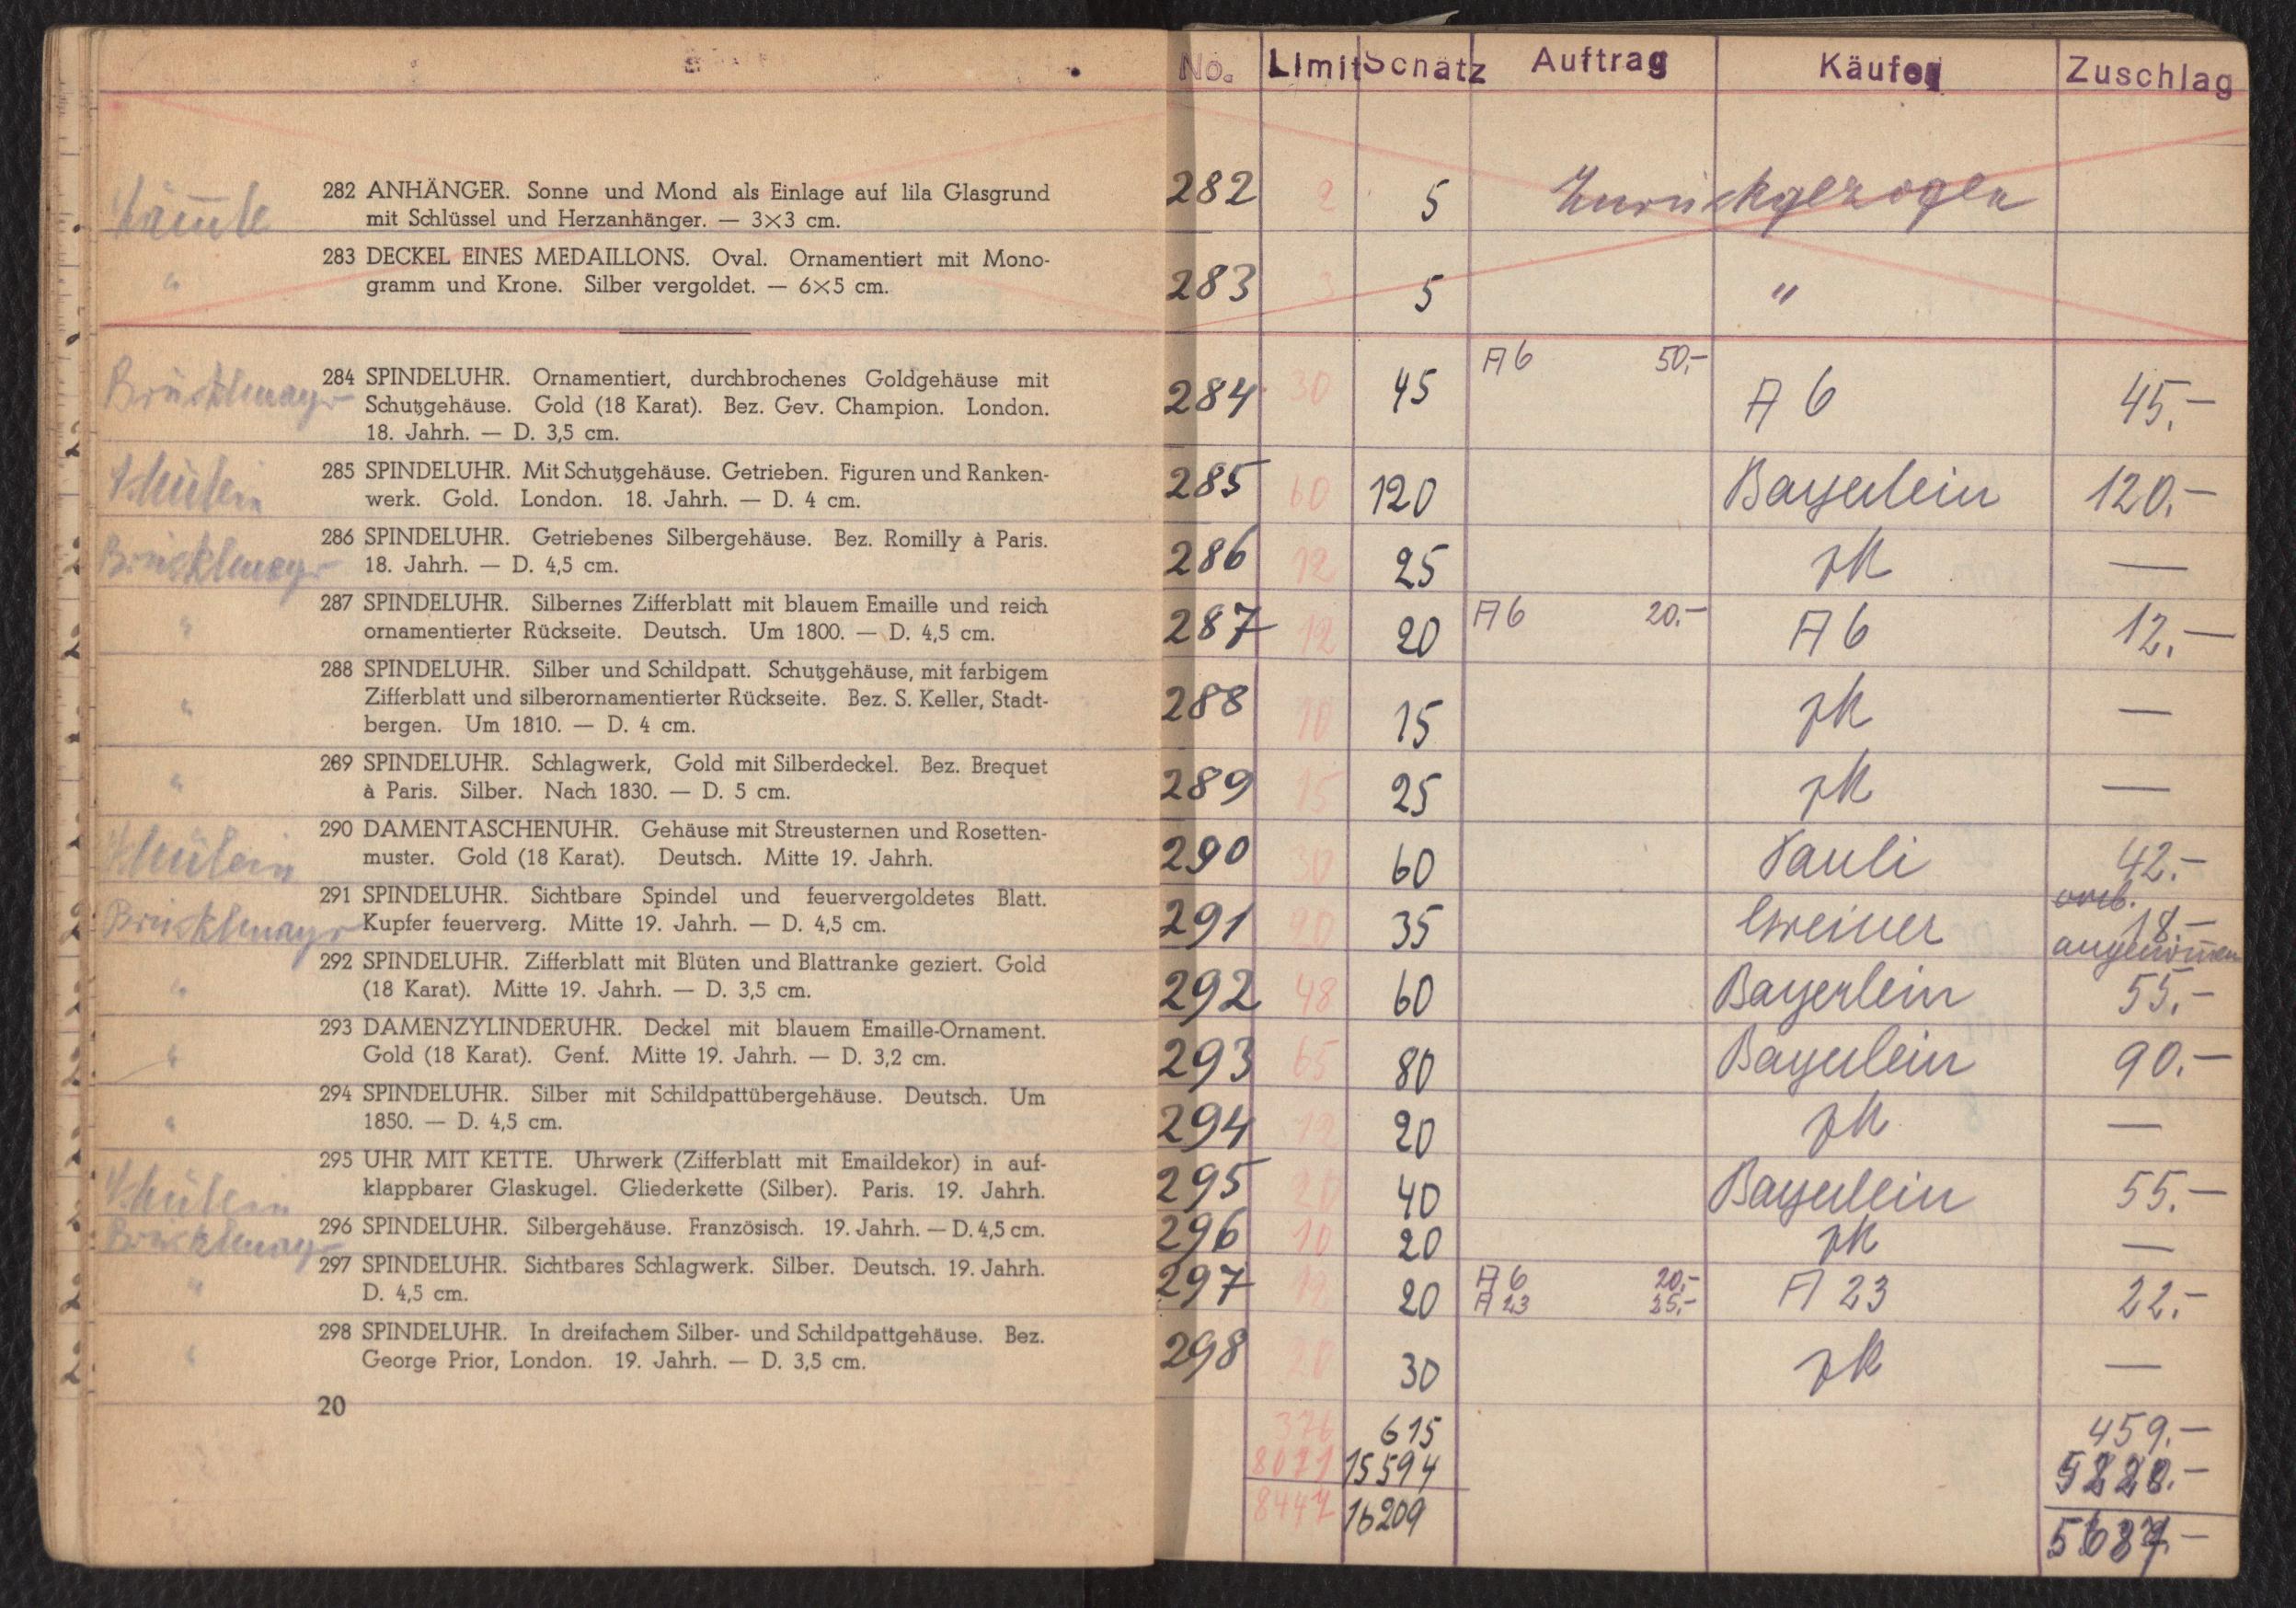 No. Limit Schätz Auftrag Käufer Zuschlag
282 ANHÄNGER. Sonne und Mond als Einlage auf lila Glasgrund
mit Schlüssel und Herzanhänger. — 3×3 cm.
282 2 5 Zurückgezogen
283 DECKEL EINES MEDAILLONS. Oval. Ornamentiert mit Mono-
gramm und Krone. Silber vergoldet. — 6×5 cm.
" 283 3 5 "
Brücklmayr 284 SPINDELUHR. Ornamentiert, durchbrochenes Goldgehäuse mit
Schutzgehäuse. Gold (18 Karat). Bez. Gev. Champion. London.
18. Jahrh. — D. 3,5 cm.
284 30 45 A 6 50,- A 6 45.-
Schülein 285 SPINDELUHR. Mit Schutzgehäuse. Getrieben. Figuren und Ranken-
werk. Gold. London. 18. Jahrh. — D. 4 cm.
285 60 120 Bayerlein 120.-
Brücklmayr 286 SPINDELUHR. Getriebenes Silbergehäuse. Bez. Romilly à Paris.
18. Jahrh. — D. 4,5 cm.
286 12 25 zk —
" 287 SPINDELUHR. Silbernes Zifferblatt mit blauem Emaille und reich
ornamentierter Rückseite. Deutsch. Um 1800. — D. 4,5 cm.
287 12 20 A 6 20.- A 6 12.-
" 288 SPINDELUHR. Silber und Schildpatt. Schutzgehäuse, mit farbigem
Zifferblatt und silberornamentierter Rückseite. Bez. S. Keller, Stadt-
bergen. Um 1810. — D. 4 cm.
288 10 15 zk —
" 289 SPINDELUHR. Schlagwerk, Gold mit Silberdeckel. Bez. Brequet
à Paris. Silber. Nach 1830. — D. 5 cm.
289 15 25 zk —
Schülein 290 DAMENTASCHENUHR. Gehäuse mit Streusternen und Rosetten-
muster. Gold (18 Karat). Deutsch. Mitte 19. Jahrh.
290 30 60 Pauli 42.-
Brücklmayr 291 SPINDELUHR. Sichtbare Spindel und feuervergoldetes Blatt.
Kupfer feuerverg. Mitte 19. Jahrh. — D. 4,5 cm.
291 20 35 Greiner 18.-
angenommen
" 292 SPINDELUHR. Zifferblatt mit Blüten und Blattranke geziert. Gold
(18 Karat). Mitte 19. Jahrh. — D. 3,5 cm.
292 48 60 Bayerlein 55.-
" 293 DAMENZYLINDERUHR. Deckel mit blauem Emaille-Ornament.
Gold (18 Karat). Genf. Mitte 19. Jahrh. — D. 3,2 cm.
293 65 80 Bayerlein 90.-
" 294 SPINDELUHR. Silber mit Schildpattübergehäuse. Deutsch. Um
1850. — D. 4,5 cm.
294 12 20 zk —
Schülein 295 UHR MIT KETTE. Uhrwerk (Zifferblatt mit Emaildekor) in auf-
klappbarer Glaskugel. Gliederkette (Silber). Paris. 19. Jahrh.
295 20 40 Bayerlein 55.-
Brücklmayr 296 SPINDELUHR. Silbergehäuse. Französisch. 19. Jahrh. — D. 4,5 cm.
296 10 20 zk —
" 297 SPINDELUHR. Sichtbares Schlagwerk. Silber. Deutsch. 19. Jahrh.
D. 4,5 cm.
297 12 20 A 6 20,- A 23 22.-
A 23 25,-
" 298 SPINDELUHR. In dreifachem Silber- und Schildpattgehäuse. Bez.
George Prior, London. 19. Jahrh. — D. 3,5 cm.
298 20 30 zk —
20
376 615 459.-
8071 15594
8447 16209